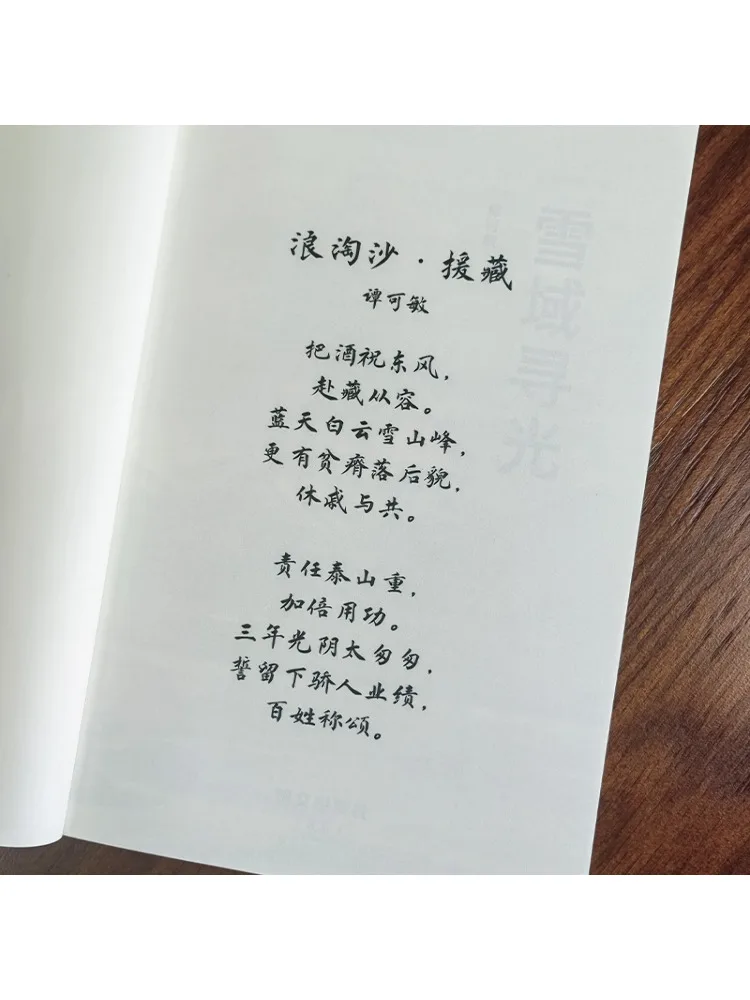 浪淘沙·援藏
谭可敏
把酒祝东风，
赴藏从容。
蓝天白云雪山峰，
更有贫瘠落后貌，
休戚与共。
责任泰山重，
加倍用功。
三年光阴太匆匆，
誓留下骄人业绩，
百姓称颂。
雪域寻光